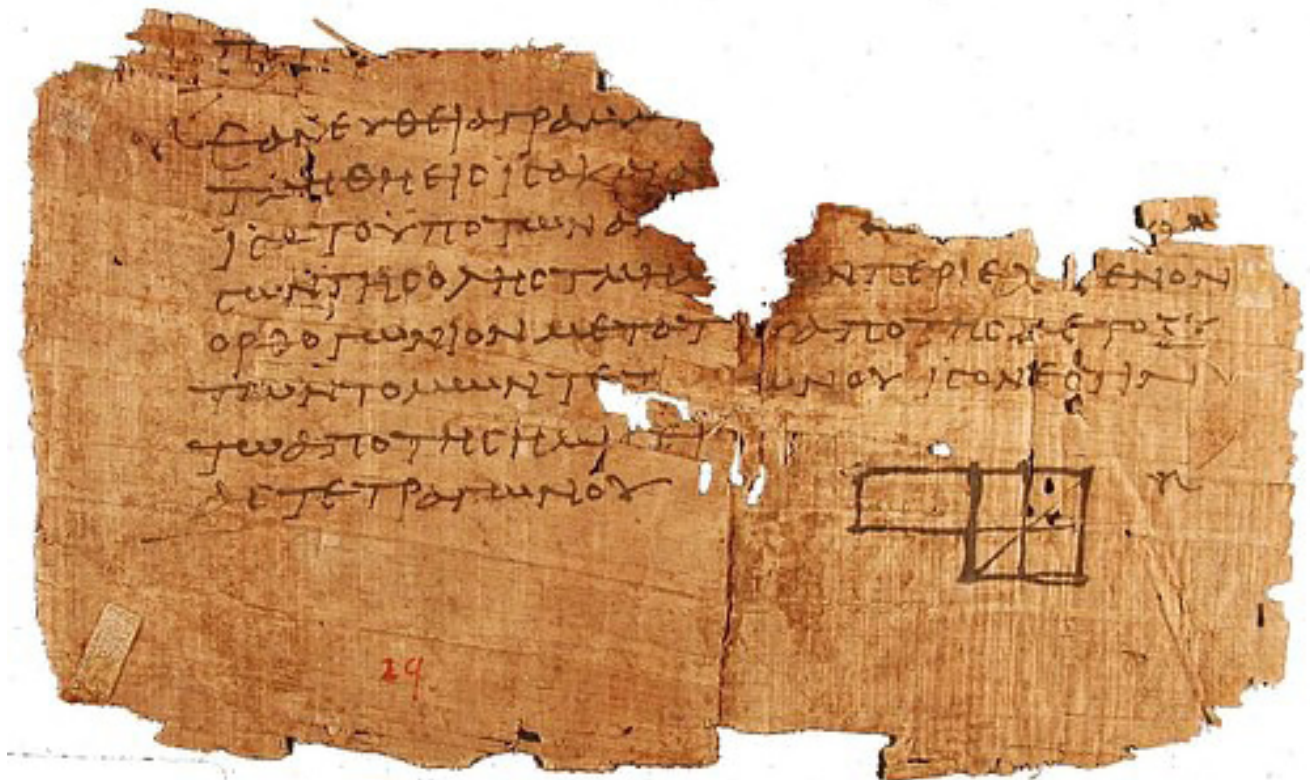 ΕΑΝΕΥΘΕΙΑΓΡΑΜΜ
ΤΜΗΘΗΕΙϹΙϹΑΚΑΙΑΝ
ΙϹΑΤΟΥΠΟΤΩΝΑ
ϹΩΝΤΗϹΟΛΗϹΤΜΗΜ ΩΝΠΕΡΙΕΧ ΜΕΝΟΝ
ΟΡΘΟΓΩΝΙΟΝΜΕΤΑΤ ΑΠΟΤΗϹΜΕΤΟΞΥ
ΤΩΝΤΟΜΩΝΤΕΤ ΩΝΟΥΙϹΟΝΕϹΤΙΝ
ΤΩΑΠΟΤΗϹΗΜΙ
ΑϹΤΕΤΡΑΓΩΝΟΥ
29